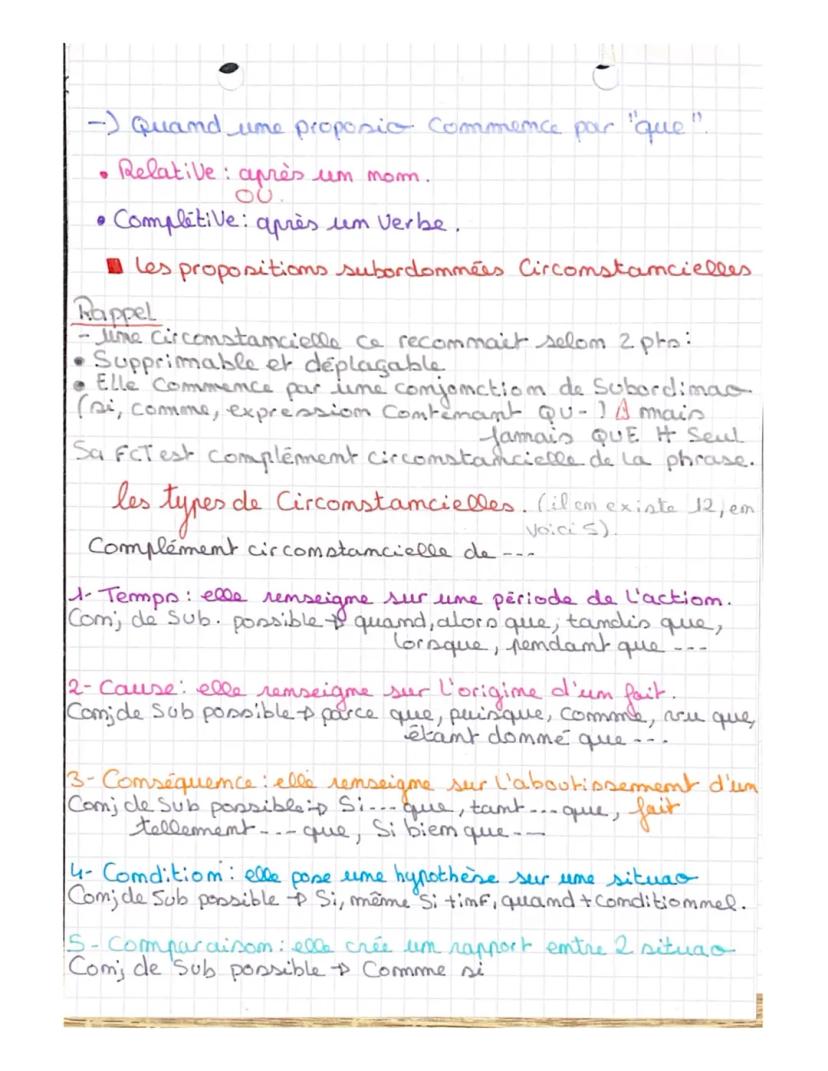 -> Quand une proposio commence par "que".
• Relative : après un nom.
OU
• Complétive : après un Verbe.
Les propositions subordonnées Circonstancielles
Rappel
- Une Circonstancielle ce reconnait selon 2 pts :
• Supprimable et déplaçable
• Elle Commence par une conjonction de Subordinao
(si, comme, expression Contenant QU-) mais
Jamais QUE tt Seul
Sa FCT est complément circonstancielle de la phrase.
les types de Circonstancielles. (il en existe 12, en
voici 5).
Complément circonstancielle de ---
1- Temps : elle renseigne sur une période de l'action.
Conj de Sub. possible -> quand, alors que, tandis que,
lorsque, pendant que ---
2- Cause : elle renseigne sur l'origine d'un fait.
Conj de Sub possible -> parce que, puisque, comme, vu que,
étant donné que ---
3- Conséquence : elle renseigne sur l'aboutissement d'un
Conj de Sub possible -> Si --- que, tant --- que, fait
tellement --- que, Si bien que --
4- Condition : elle pose une hypothèse sur une situao
Conj de Sub possible -> Si, même Si + inf, quand + conditionnel.
5- Comparaison : elle crée un rapport entre 2 situao
Conj de Sub possible -> Comme si